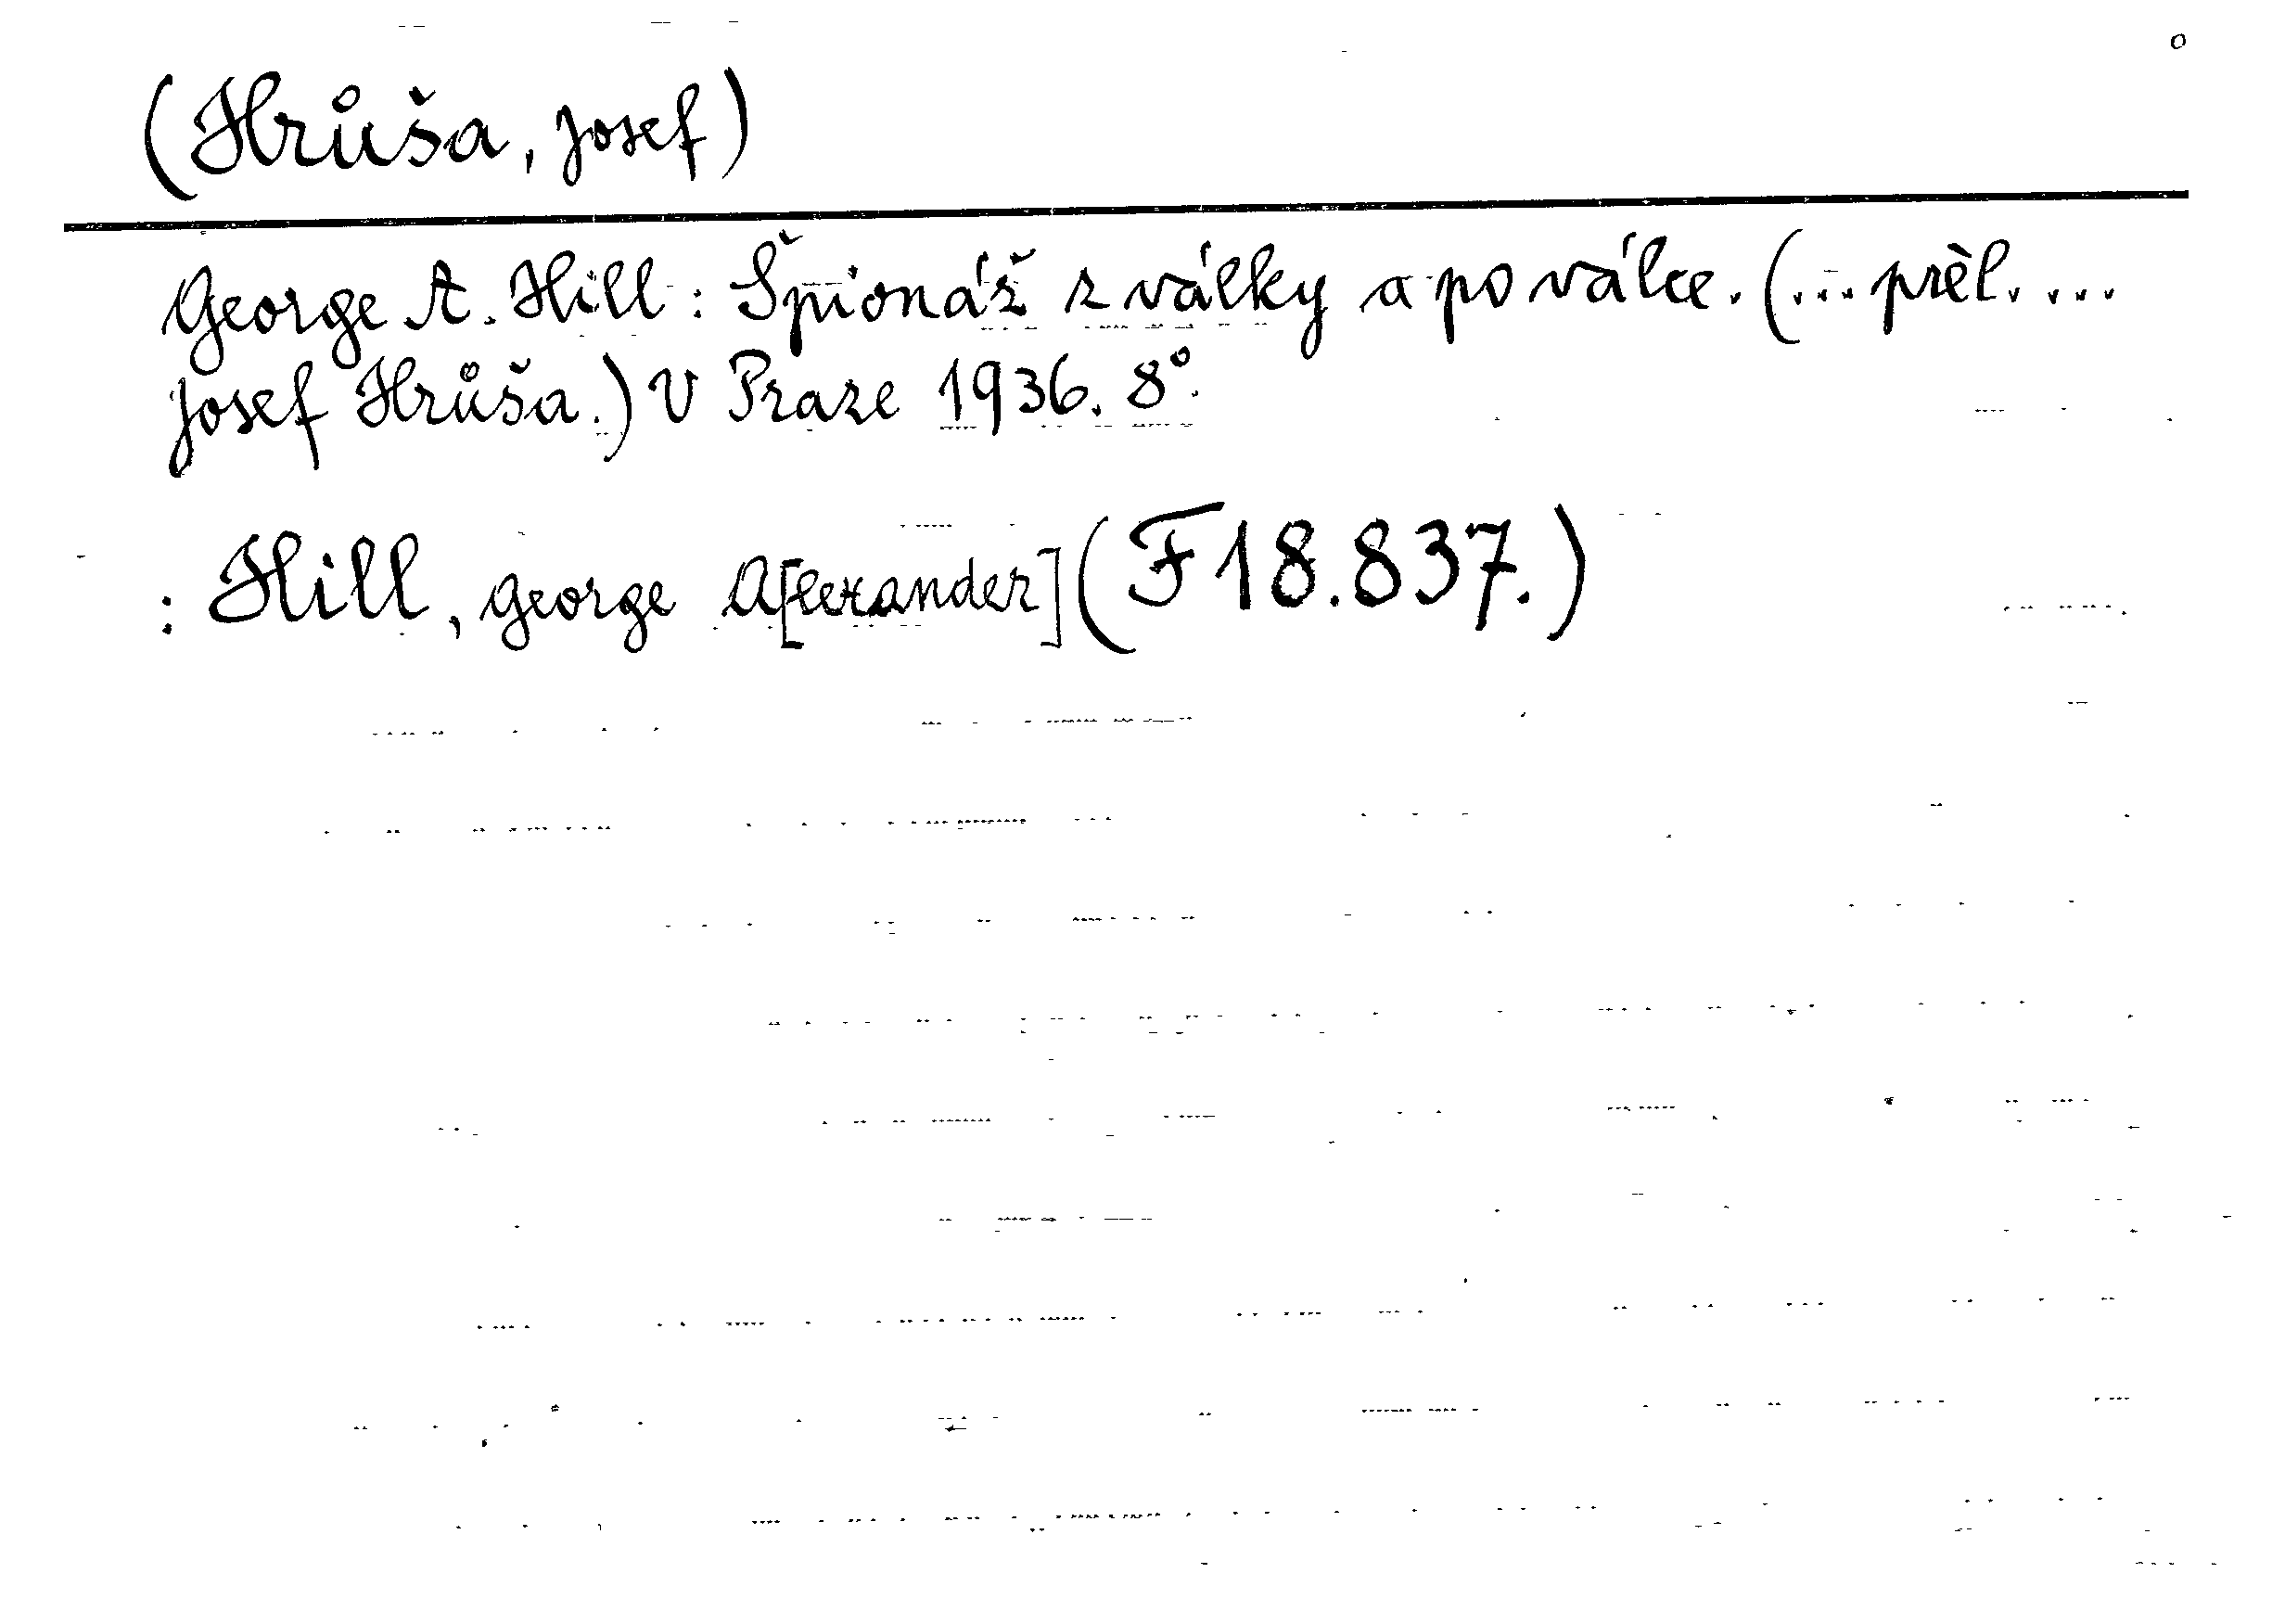 o
(Hrůša, Josef)
George A. Hill: Špionáž z války a po válce. (... přel. ...
Josef Hrůša.) V Praze 1936. 8°.
: Hill, George A[lexander] (F 18.837.)